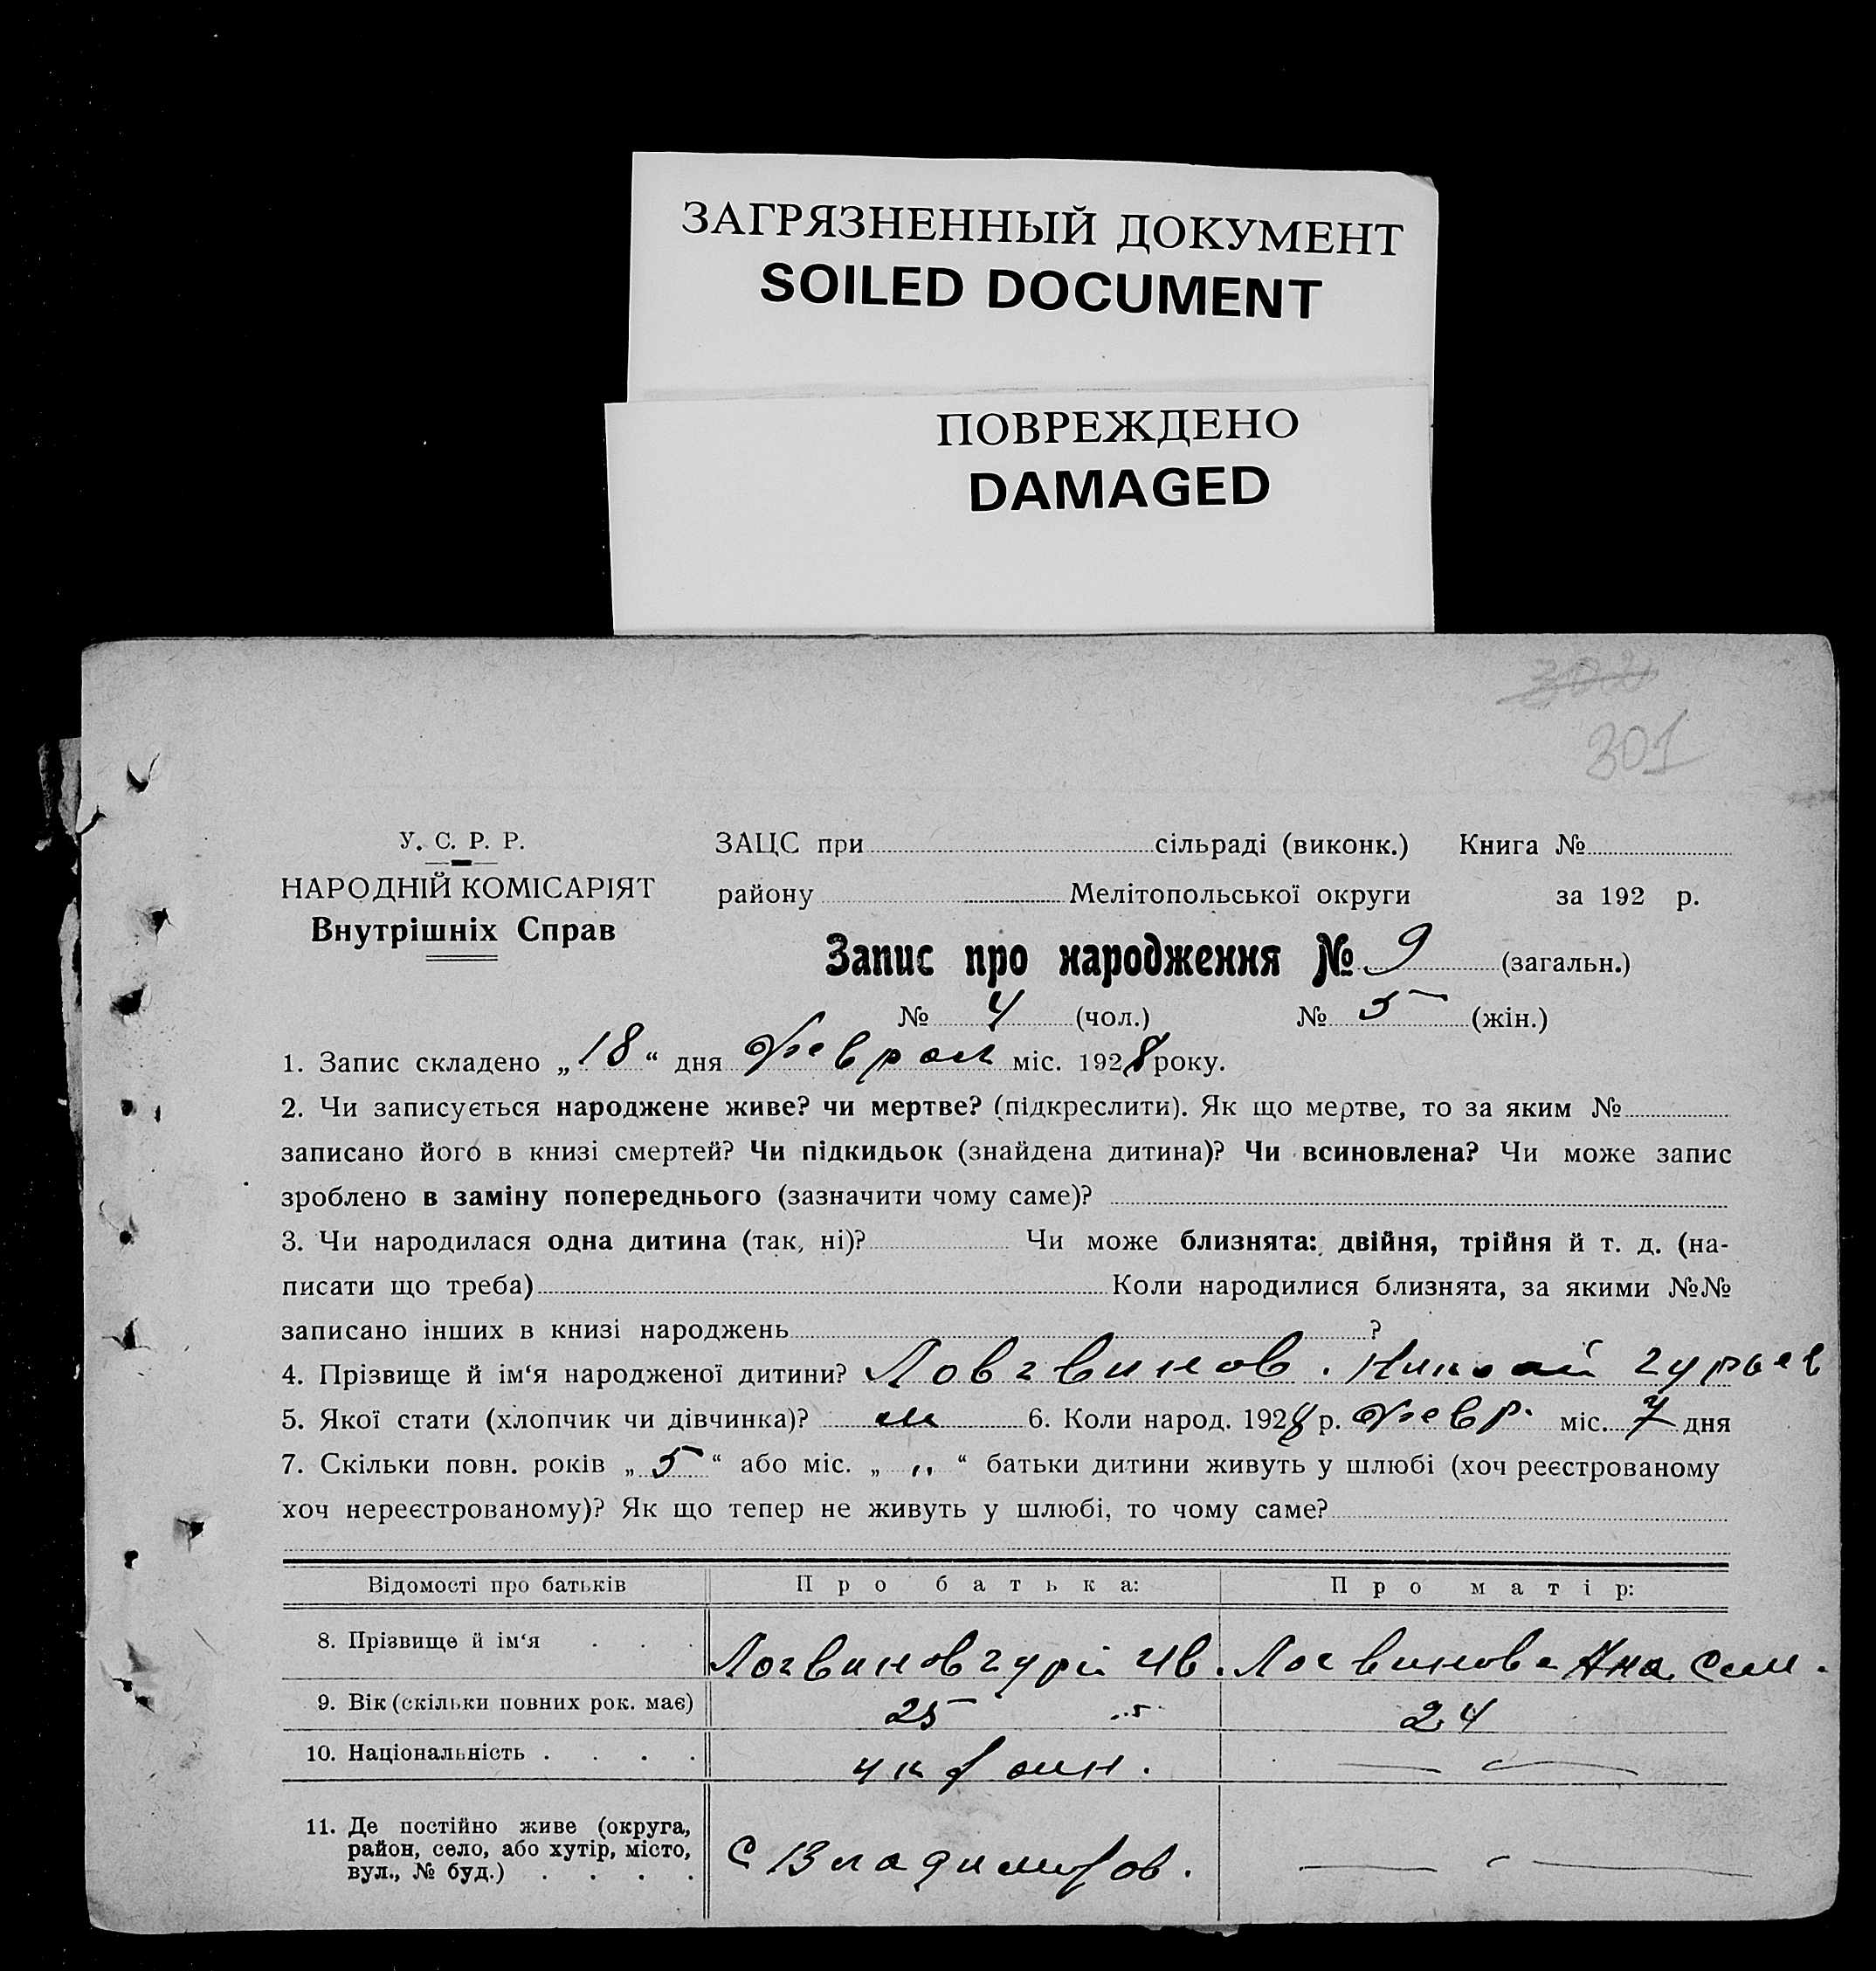 ЗАГРЯЗНЕННЫЙ ДОКУМЕНТ
SOILED DOCUMENT
ПОВРЕЖДЕНО
DAMAGED
302
301
У. С. Р. Р.
НАРОДНІЙ КОМІСАРІЯТ
Внутрішніх Справ
ЗАЦС при сільраді (виконк.) Книга №
району Мелітопольської округи за 192 р.
Запис про народження № 9 (загальн.)
№ 4 (чол.) № 5 (жін.)
1. Запис складено „18“ дня Феврал міс. 1928 року.
2. Чи записується народжене живе? чи мертве? (підкреслити). Як що мертве, то за яким №
записано його в книзі смертей? Чи підкидьок (знайдена дитина)? Чи всиновлена? Чи може запис
зроблено в заміну попереднього (зазначити чому саме)?
3. Чи народилася одна дитина (так, ні)? Чи може близнята: двійня, трійня й т. д. (на-
писати що треба) Коли народилися близнята, за якими №№
записано інших в книзі народжень ?
4. Прізвище й ім‘я народженої дитини? Ловгвинов. Николай гурьев
5. Якої стати (хлопчик чи дівчинка)? м 6. Коли народ. 1928 р. Февр. міс. 7 дня
7. Скільки повн. років „5“ або міс. „ „ “ батьки дитини живуть у шлюбі (хоч реєстрованому
хоч нереєстрованому)? Як що тепер не живуть у шлюбі, то чому саме?
Відомості про батьків Про батька: Про матір:
8. Прізвище й ім‘я . . . Логвинов гурій Ив. Логвинова Ана Сем.
9. Вік (скільки повних рок. має) 25 24
10. Національність . . . . украин. —
11. Де постійно живе (округа,
район, село, або хутір, місто,
вул., № буд.) . . . . С Владимиров. —